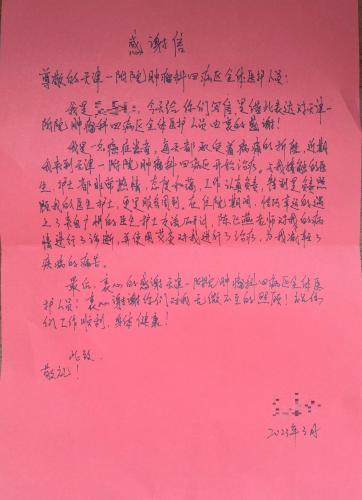 感谢信
尊敬的天津一附院肿瘤科四病区全体医护人员：
我是，今天给你们写信是借此表达对天津一
附院肿瘤科四病区全体医护人员由衷的感谢！
我是一名癌症患者，每天都承受着病痛的折磨，近期
我来到天津一附院肿瘤科四病区开始治疗。与我接触的医
生、护士都非常热情，态度和蔼，工作认真负责，特别是
我的医生护士，更是服务周到，在住院期间，
了来自广州的医生护士方法研讨，陈飞燕老师对我的病
情进行了诊断，并使用艾灸对我进行了治疗，为我减轻了
疾病的痛苦。
最后，衷心的感谢天津一附院肿瘤科四病区全体医
护人员！衷心谢谢你们对我无微不至的照顾！祝你
们工作顺利，身体健康！
此致
敬礼！
2023年3月